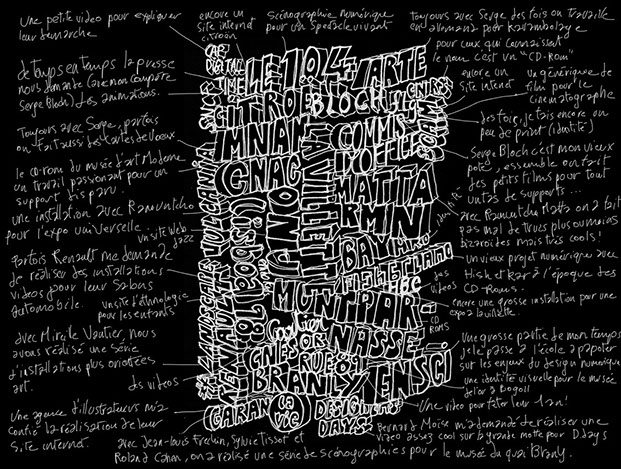 une petite video pour expliquer
leur démarche
encore un
site internet
citroën
scénographie numérique
pour un spectacle vivant
toujours avec Serge des fois on travaille
en allemand pour
pour ceux qui connaissent
le nom c'est un "CD-Rom"
de temps en temps la presse
nous demande
Serge Bloch) des animations.
encore un
site internet
un générique de
film pour le
cinématographe
des fois, je fais encore un
peu de print (identité)
Toujours avec Serge, parfois
on fait aussi des cartes de voeux
le cd-rom du musée d'art Moderne
un travail passionnant pour un
support disparu.
Serge Bloch c'est mon vieux
pote, ensemble on fait
des petits films pour tout
un tas de supports...
une installation avec Ramuntcho
pour l'expo universelle.
un site Web
jazz
avec Ramuntcho Matta on a fait
pas mal de trucs plus ou moins
bizarroïdes mais très cools!
parfois Renault me demande
de réaliser des installations
videos pour leur Salons
automobile.
un vieux projet numérique avec
à l'époque des
CD-Roms.
des
videos
un site d'ethnologie
pour les enfants
encore une grosse installation pour une
expo à la villette
CD
ROMS
avec Mireille Vautier, nous
avons réalisé une série
d'installations plus orientées
art.
une grosse partie de mon temps
je le passe à l'école à papoter
sur les enjeux du design numérique
des videos
une identité visuelle pour le musée
de l'or à Bogota
Une video pour fêter leur 1 an!
une agence d'illustrateurs m'a
confié la réalisation de leur
site internet.
Bernard Moïse m'a demandé de réaliser une
video assez cool sur la grande motte pour Ddays
avec Jean-Louis Frechin, Sylvie Tissot et
Roland Cahen, on a réalisé une série de scénographies pour le musée du quai Branly.
ART
DIGITAL
TIME
LE 104
ARTE
CITROËN
BLOCH
CNRS
MNAM
COMMIS
D'OFFICE
CNAC
LA VILLETTE
MATTA
RMN
Lisboa 98
BAY
FILLETTERIAND
HEC
VULCANIA
RENAULT
MUNTPAR
NASSE
RUE 89
BRANLY
ENSCI
GARAN
DESIGNERS
DAYS